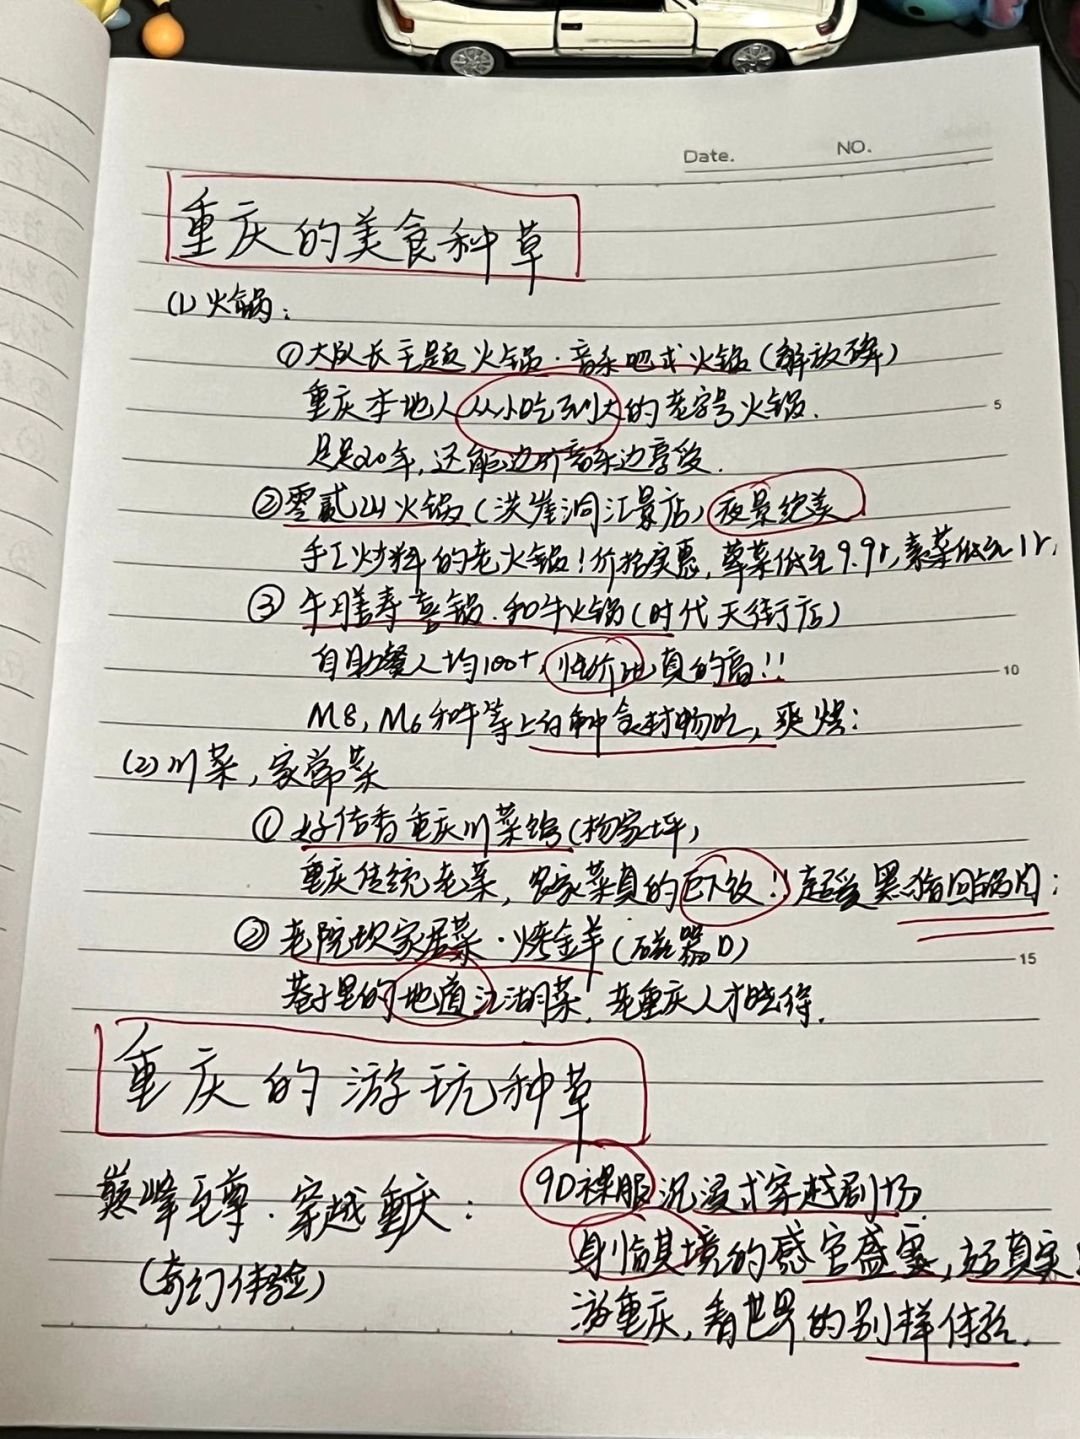 Date.
NO.
重庆的美食种草
(1)火锅:
①大队长主题火锅·音乐吧式火锅(解放碑)
重庆本地人从小吃到大的老字号火锅.
足足20年,还能边听音乐边享受.
②零贰山火锅(洪崖洞江景店)夜景绝美
手工炒料的老火锅!价格实惠,荤菜低至9.9r,素菜低至1r,
③牛膳寿喜锅.和牛火锅(时代天街店)
自助餐人均100+,性价比真的高!!
M8,M6和牛等上百种食材畅吃,爽
(2)川菜,家常菜
①好传香重庆川菜馆(杨家坪)
重庆传统老菜,农家菜真的巨下饭!!超爱黑猪回锅肉:
②老院坎家居菜·烤全羊(磁器口)
巷子里的地道江湖菜,老重庆人才晓得.
重庆的游玩种草
巅峰至尊·穿越重庆:
(奇幻体验)
9D裸眼沉浸式穿越剧场.
身临其境的感官盛宴,好真实
游重庆,看世界的别样体验.
5
10
15